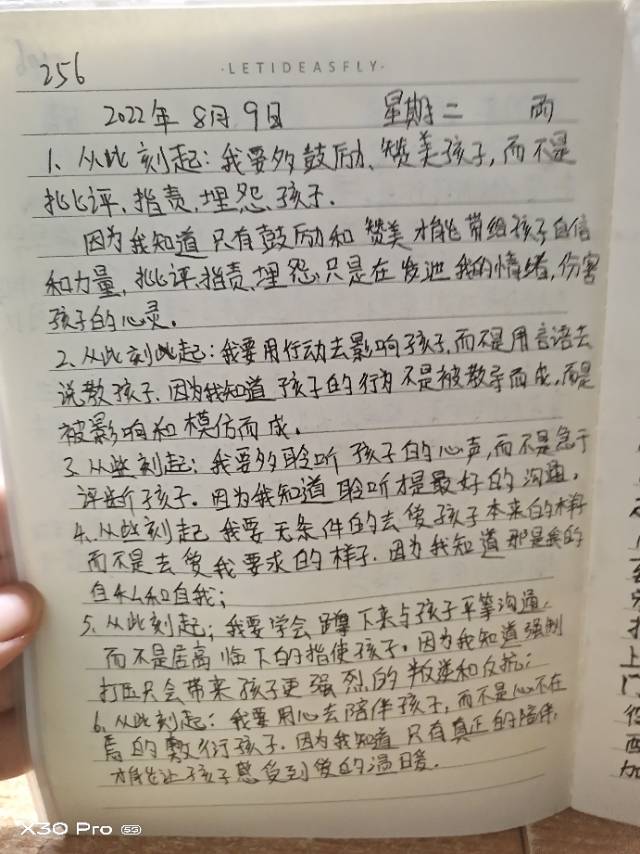 256
·LETIDEASFLY·
2022年8月9日 星期二 雨
1、从此刻起：我要多鼓励、赞美孩子，而不是
批评、指责、埋怨、孩子．
因为我知道只有鼓励和赞美才能带给孩子自信
和力量，批评、指责、埋怨、只是在发泄我的情绪，伤害
孩子的心灵。
2、从此刻此起：我要用行动去影响孩子，而不是用言语去
说教孩子．因为我知道孩子的行为不是被教导而成，而是
被影响和模仿而成。
3、从此刻起；我要多聆听孩子的心声，而不是急于
评断孩子．因为我知道聆听才是最好的沟通，
4、从此刻起 我要无条件的去爱孩子本来的样子
而不是去爱我要求的样子．因为我知道那是我的
自私和自我；
5、从此刻起；我要学会蹲下来与孩子平等沟通，
而不是居高临下的指使孩子。因为我知道强制
打压只会带来孩子更强烈的叛逆和反抗；
6、从此刻起：我要用心去陪伴孩子，而不是心不在
焉的敷衍孩子．因为我知道只有真正的陪伴，
才能让孩子感受到爱的温暖．
X30 Pro